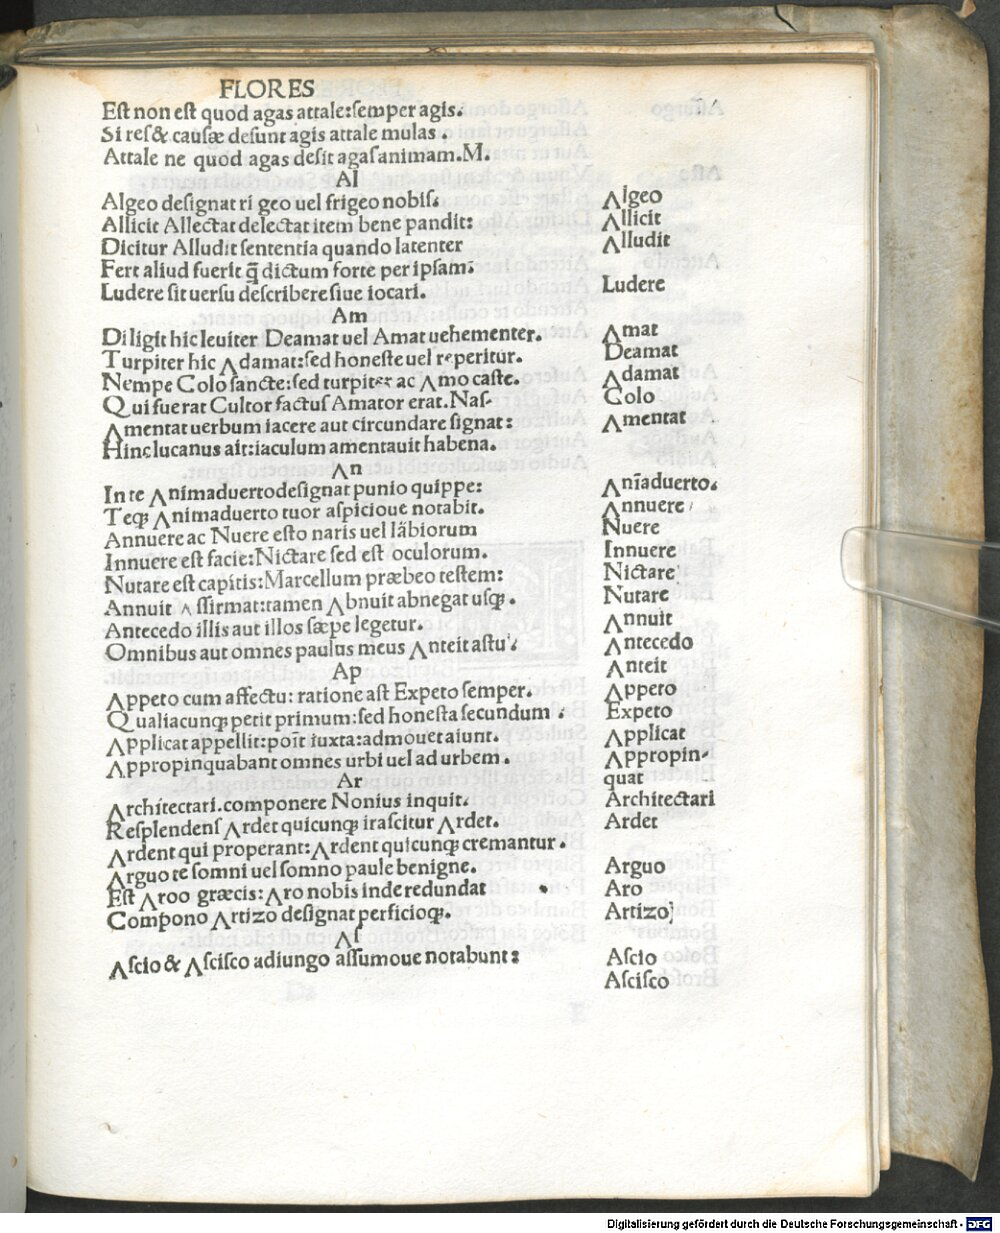 FLORES
Est non est quod agas attale:semper agis.
Si reſ& cauſæ deſunt agis attale mulas.
Attale ne quod agas desit agaſ animam.M.
Al
Algeo deſignat ri geo uel frigeo nobiſ.
Allicit Allectat delectat item bene pandit:
Dicitur Alludit ſententia quando latenter
Fert aliud fuerit q̃ dictum forte per ipſam:
Ludere ſit uerſu deſcribere ſiue iocari.
Am
Diligit hic leuiter Deamat uel Amat uehementer.
Turpiter hic Adamat:ſed honeſte uel reperitur.
Nempe Colo ſancte:ſed turpiter ac Amo caſte.
Qui fuerat Cultor factuſ Amator erat.Naſ.
Amentat uerbum iacere aut circundare ſignat:
Hinc lucanus ait:iaculum amentauit habena.
An
In te Animaduerto deſignat punio quippe:
Teqꝫ Animaduerto tuor aſpicioue notabit.
Annuere ac Nuere eſto naris uel labiorum
Innuere eſt facie:Nictare ſed eſt oculorum.
Nutare eſt capitis:Marcellum præbeo teſtem:
Annuit Aſſirmat:tamen Abnuit abnegat uſqꝫ.
Antecedo illis aut illos ſæpe legetur.
Omnibus aut omnes paulus meus Anteit aſtu.
Ap
Appeto cum affectu: ratione aſt Expeto ſemper.
Qualiacunqꝫ petit primum:ſed honeſta ſecundum.
Applicat appellit:poĩt iuxta:admouet aiunt.
Appropinquabant omnes urbi uel ad urbem.
Ar
Architectari.componere Nonius inquit.
Resplendenſ Ardet quicunqꝫ iraſcitur Ardet.
Ardent qui properant:Ardent quicunqꝫ cremantur.
Arguo te ſomni uel ſomno paule benigne.
Eſt Aroo græcis:Aro nobis inde redundat
Compono Artizo deſignat perficioqꝫ.
Aſ
Aſcio & Aſciſco adiungo aſſumoue notabunt:
Algeo
Allicit
Alludit
Ludere
Amat
Deamat
Adamat
Colo
Amentat
Anĩaduerto.
Annuere
Nuere
Innuere
Nictare
Nutare
Annuit
Antecedo
Anteit
Appeto
Expeto
Applicat
Appropin-
quat
Architectari
Ardet
Arguo
Aro
Artizo
Aſcio
Aſciſco
Digitalisierung gefördert durch die Deutsche Forschungsgemeinschaft - DFG